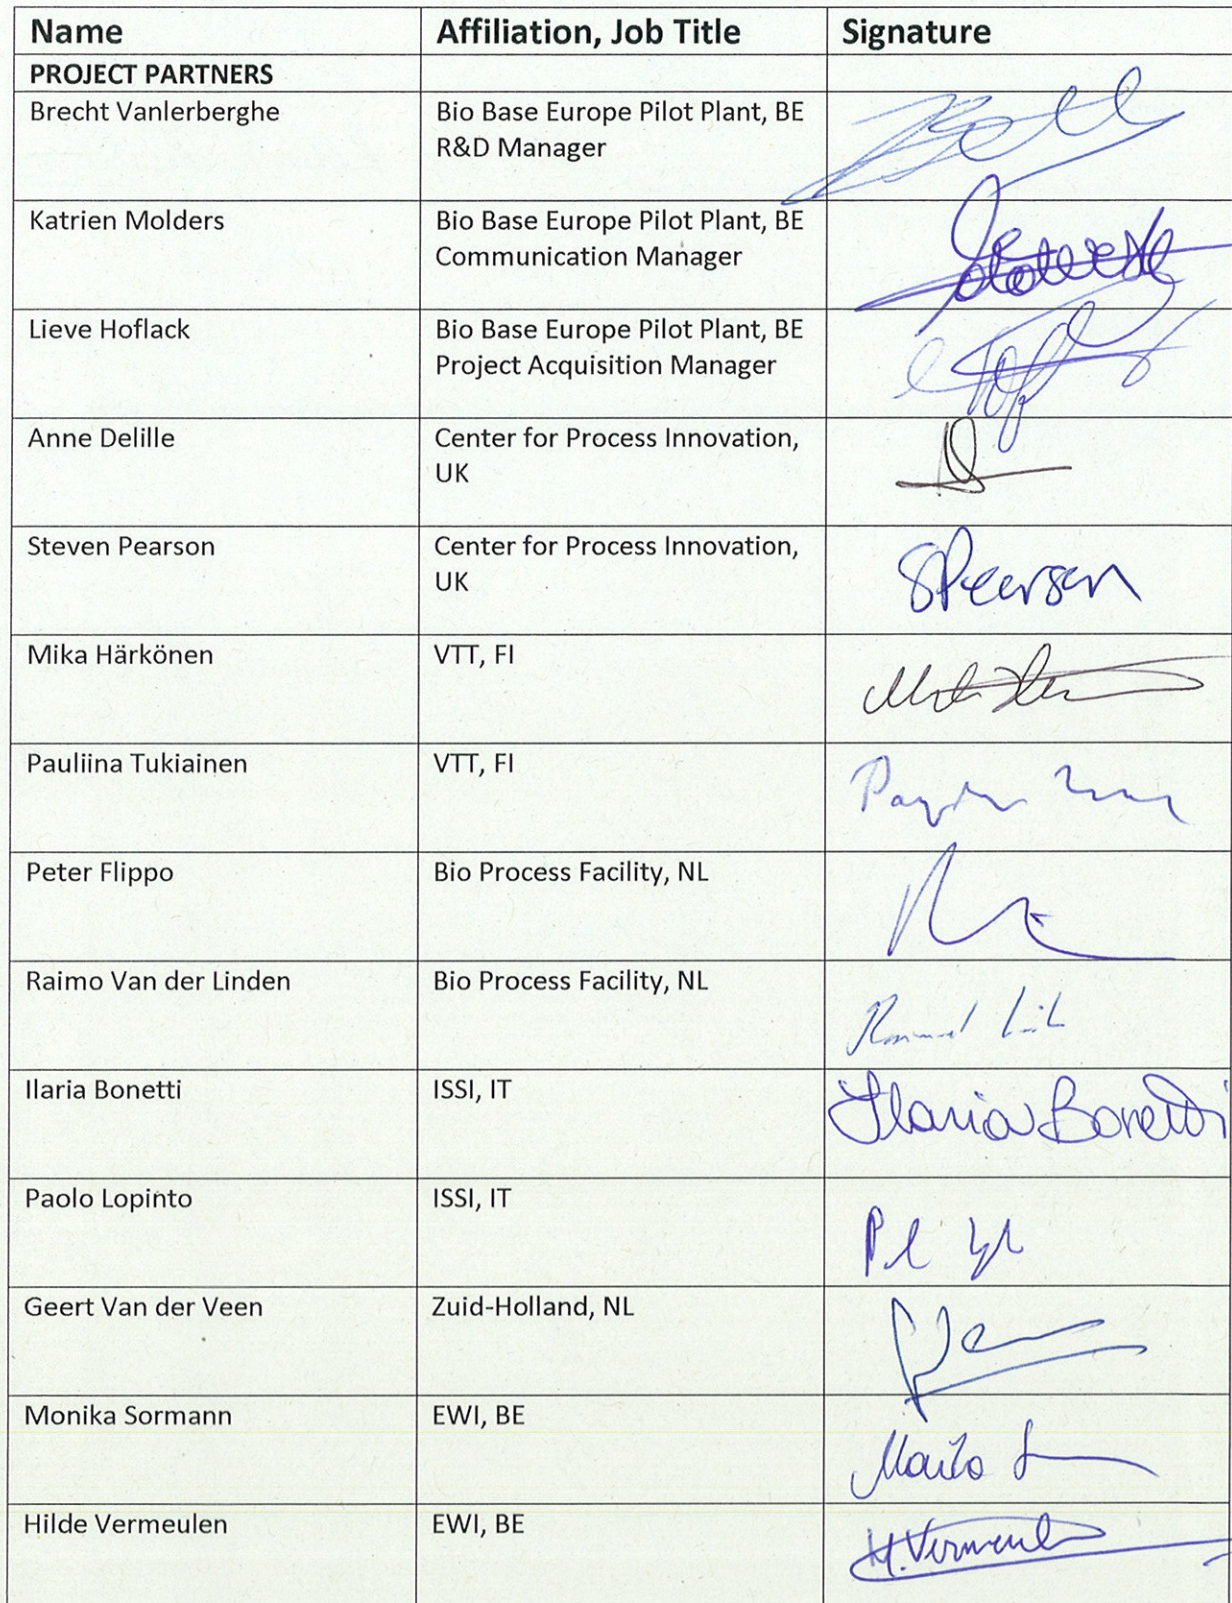 Name Affiliation, Job Title Signature
PROJECT PARTNERS
Brecht Vanlerberghe Bio Base Europe Pilot Plant, BE
R&D Manager
Katrien Molders Bio Base Europe Pilot Plant, BE
Communication Manager
Lieve Hoflack Bio Base Europe Pilot Plant, BE
Project Acquisition Manager
Anne Delille Center for Process Innovation,
UK
Steven Pearson Center for Process Innovation,
UK
SPearson
Mika Härkönen VTT, FI
Pauliina Tukiainen VTT, FI
Peter Flippo Bio Process Facility, NL
Raimo Van der Linden Bio Process Facility, NL
Ilaria Bonetti ISSI, IT Ilaria Bonetti
Paolo Lopinto ISSI, IT
Geert Van der Veen Zuid-Holland, NL
Monika Sormann EWI, BE
Hilde Vermeulen EWI, BE
H.Vermeul